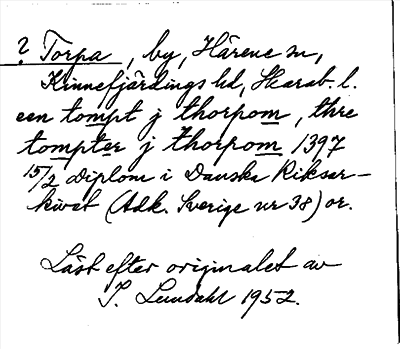 ? Torpa, by, Härene sn,
Kinnefjärdings hd, Skarab. l.
een tompt j thorpom, thre
tompter j thorpom 1397
15/2 diplom i Danska Riksar-
kivet (Adk. Sverige nr 38) or.
Läst efter originalet av
I. Lundahl 1952.